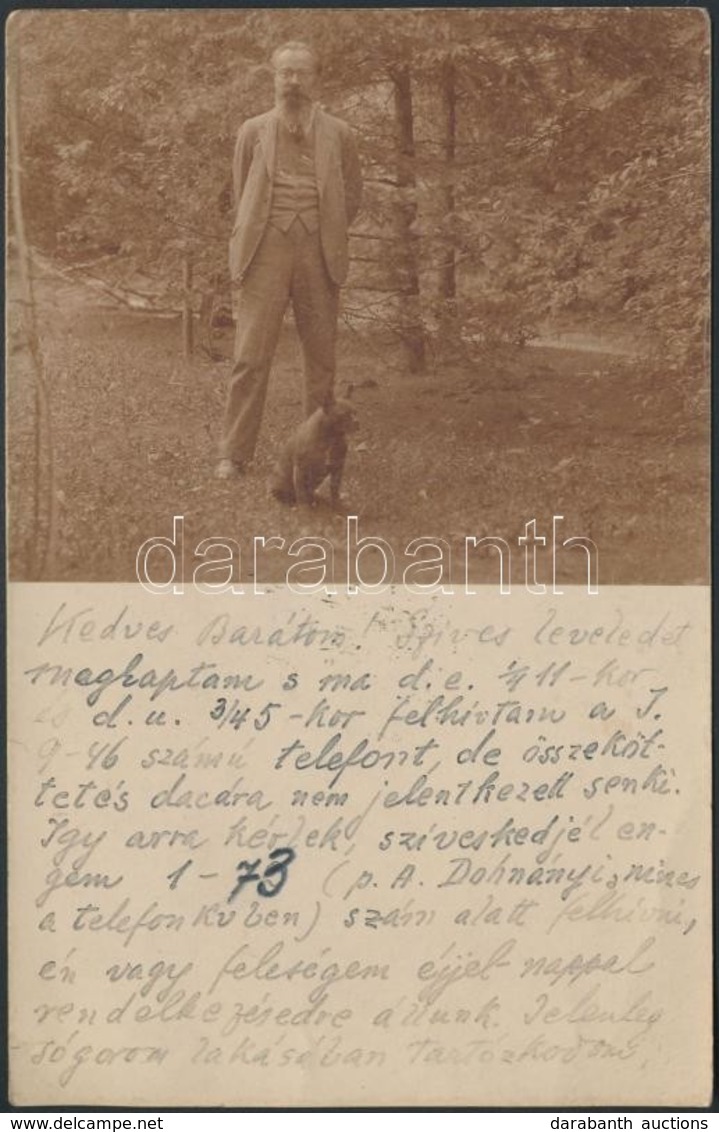 darabanth
Kedves Barátom! Szives leveledet
megkaptam s ma d.e. 1/4 11-kor
és d.u. 3/4 5-kor felhivtam a J.
9-46 számú telefont, de összeköt-
tetés dacára nem jelentkezett senki.
Igy arra kérlek, sziveskedjél en-
gem 1-73 (p. A. Dohnányi, nincs
a telefonkvben) szám alatt felhivni,
én vagy feleségem éjjel-nappal
rendelkezésedre állunk. Jelenleg
sógorom lakásában tartózkodom.
darabanth auctions